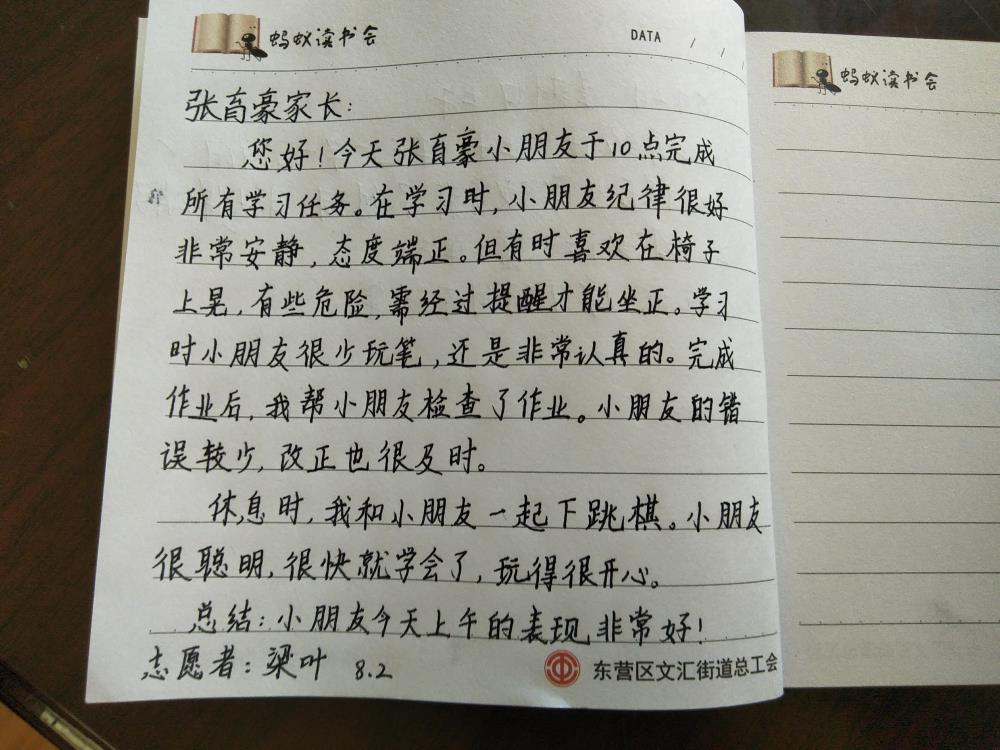 蚂蚁读书会
DATA / /
张育豪家长：
您好！今天张育豪小朋友于10点完成
所有学习任务。在学习时，小朋友纪律很好
非常安静，态度端正。但有时喜欢在椅子
上晃，有些危险，需经过提醒才能坐正。学习
时小朋友很少玩笔，还是非常认真的。完成
作业后，我帮小朋友检查了作业。小朋友的错
误较少，改正也很及时。
休息时，我和小朋友一起下跳棋。小朋友
很聪明，很快就学会了，玩得很开心。
总结：小朋友今天上午的表现非常好！
志愿者：梁叶 8.2
东营区文汇街道总工会
蚂蚁读书会